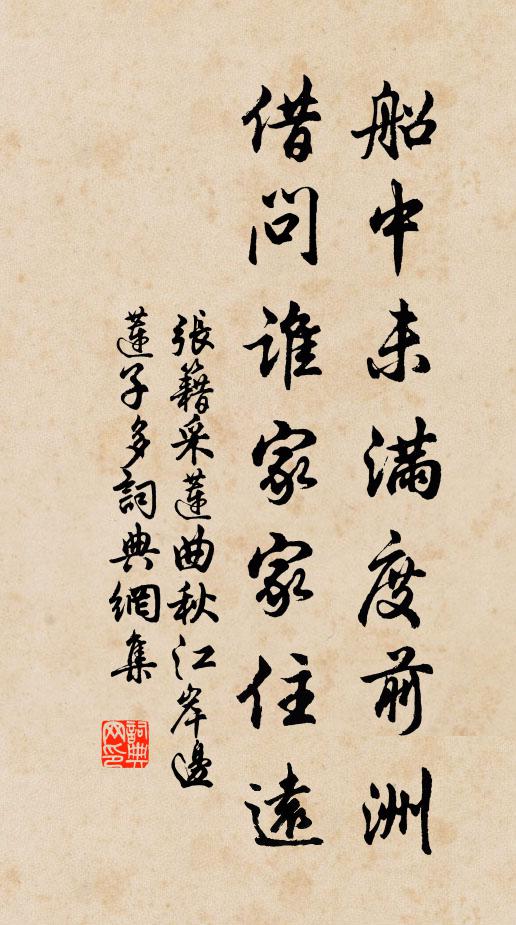 船中未滿度前洲
借問誰家家住遠
張籍采蓮曲秋江岸邊
蓮子多詞典網集
詞典
网印